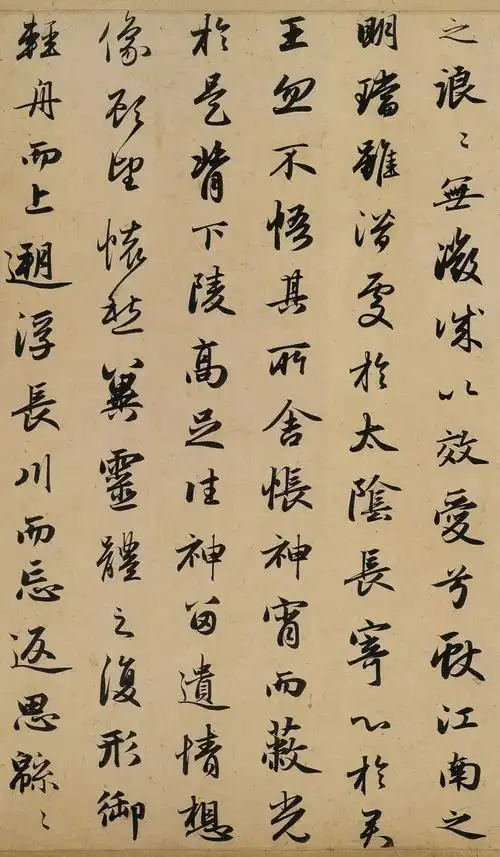 之浪〻無微誠以效愛兮獻江南之
明璫雖潜處於太陰長寄心於君
王忽不悟其所舍悵神宵而蔽光
於是背下陵高足往神留遺情想
像顧望懷愁冀靈體之復形御
輕舟而上遡浮長川而忘返思緜〻